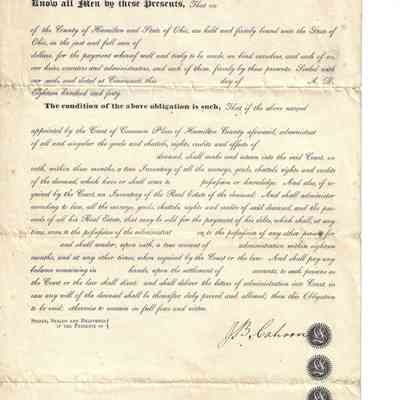 Know all Men by these Presents, That we
of the County of Hamilton and State of Ohio, are held and firmly bound unto the State of
Ohio, in the just and full sum of
dollars, for the payment whereof well and truly to be made, we bind ourselves, and each of us,
our heirs, executors and administrators, and each of them, firmly by these presents. Sealed with
our seals, and dated at Cincinnati, this day of A. D.
Eighteen hundred and forty
The condition of the above obligation is such, That if the above named
appointed by the Court of Common Pleas of Hamilton County aforesaid, administrat
of all and singular the goods and chattels, rights, credits and effects of
deceased, shall make and return into the said Court, on
oath, within three months, a true Inventory of all the moneys, goods, chattels, rights and credits
of the deceased, which have or shall come to possession or knowledge. And also, if re-
quired by the Court, an Inventory of the Real Estate of the deceased. And shall administer
according to law, all the moneys, goods, chattels, rights and credits of said deceased, and the pro-
ceeds of all his Real Estate, that may be sold for the payment of his debts, which shall, at any
time, come to the possession of the administrat or, to the possession of any other person for
and shall render, upon oath, a true account of administration within eighteen
months, and at any other times, when required by the Court or the law. And shall pay any
balance remaining in hands, upon the settlement of accounts, to such persons as
the Court or the law shall direct: and shall deliver the letters of administration into Court, in
case any will of the deceased shall be thereafter duly proved and allowed; then this Obligation
to be void; otherwise to remain in full force and virtue.
Sealed, Sealed and Delivered
in the Presence of
J. B. Cahoon